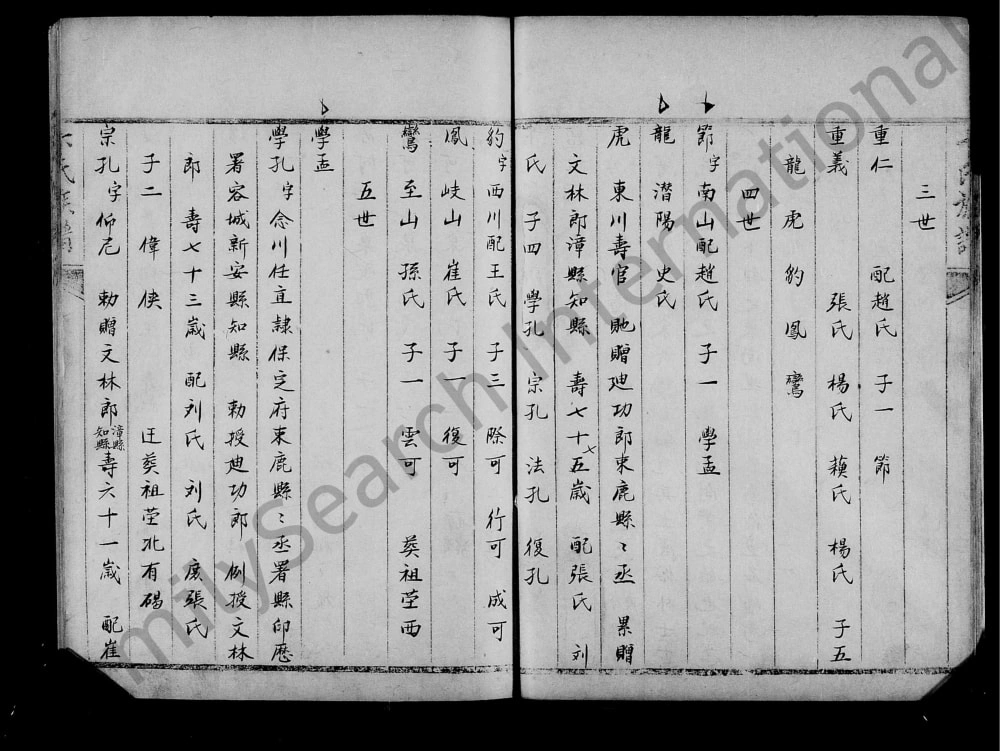 三世
重仁 配趙氏 子一 節
重義 張氏 楊氏 䕒氏 楊氏 子五
龍 虎 豹 鳳 鸞
四世
節 字南山配趙氏 子一 學孟
龍 潛陽 史氏
虎 東川壽官 貤贈廸功郎束鹿縣〻丞 累贈
文林郎漳縣知縣 壽七十五歲 配張氏 刘
氏 子四 學孔 宗孔 法孔 復孔
豹 字西川配王氏 子三 際可 行可 成可
鳳 岐山 崔氏 子一 復可
鸞 至山 孫氏 子一 雲可 葬祖塋西
五世
學孟
學孔 字念川任直隷保定府束鹿縣〻丞署縣印歷
署容城新安縣知縣 勅授廸功郎 例授文林
郎 壽七十三歲 配刘氏 刘氏 庶張氏
子二 偉 俠 迋葬祖塋北有碣
宗孔 字仰尼 勅贈文林郎漳縣知縣壽六十一歲 配崔
FamilySearch International